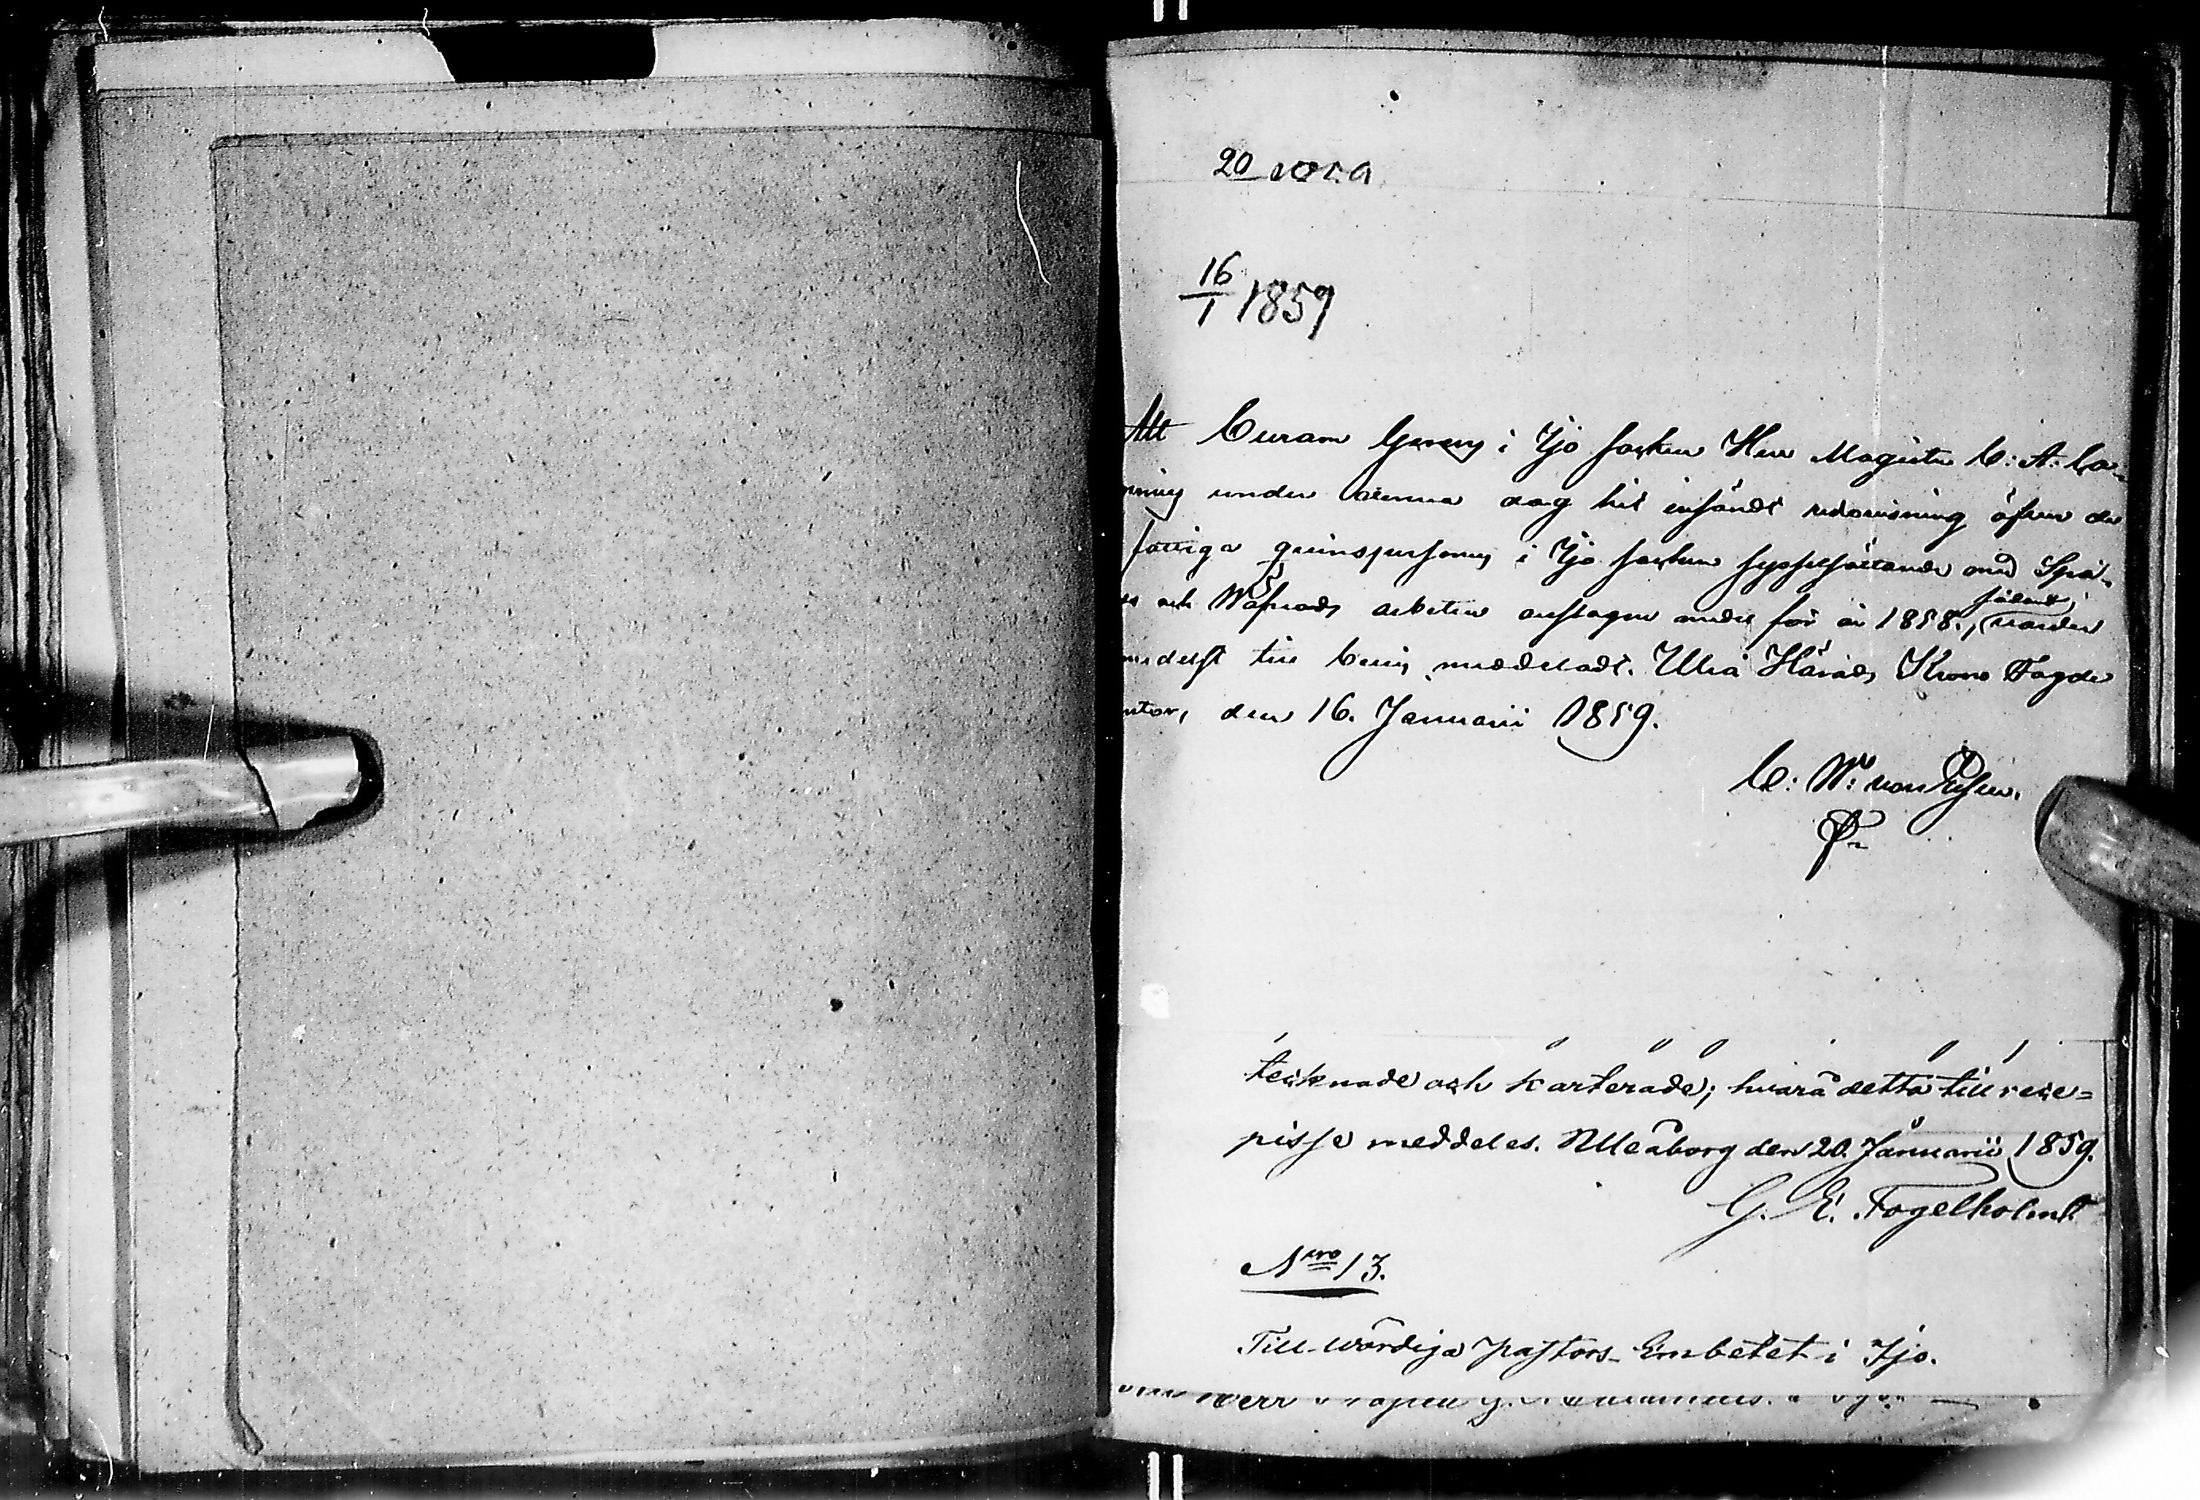 20
16/1 1859
Att Curam Gerens i Ijo socken Herr Magister C: A: Ca-
under denna dag hit insändt redovisning öfver de
fattiga qvinspersoner i Ijo socken sysselsättande med Spå-
och Väfnads arbeten anslagne medel för år 1858., varder
sålunda
medelst till bevis meddeladt. Uleå Härads Krono Fogde
ntor, den 16. Januarii 1859.
C: W: von
tecknade och karterade; hvarå detta till rece=
pisse meddeles. Uleåborg den 20. Januarii 1859.
G. E. Fogelholm
Nro 13.
Till Wördiga Pastors-Embetet i Ijo.